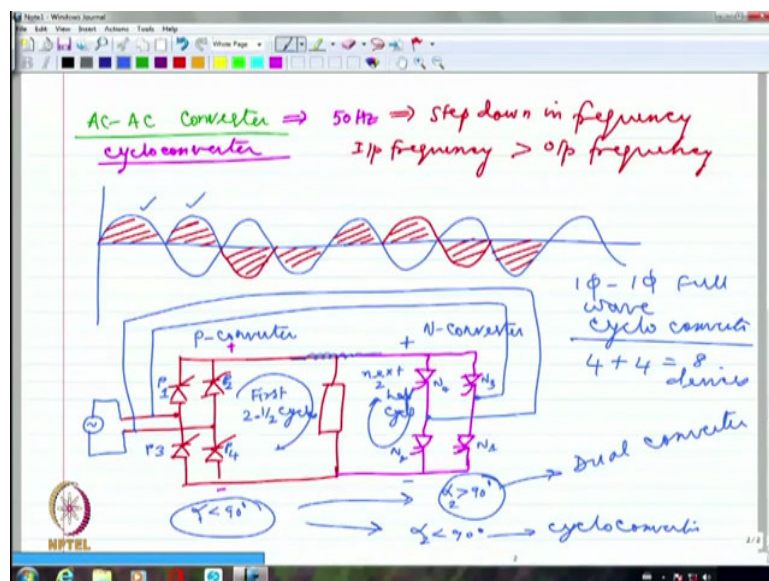 Note1 - Windows Journal
File Edit View Insert Actions Tools Help
Whole Page
AC-AC Converter ⇒ 50 Hz ⇒ Step down in frequency
cycloconverter I/p frequency > O/p frequency
1φ - 1φ full
wave
cyclo converter
4 + 4 = 8
devices
P-converter + + N-converter
P1 P2 First 2-1/2 cycle next 2 half cycle N4 N3
P3 P4 N2 N1
- -
α1 < 90° α2 > 90° Dual converter
α2 < 90° cycloconverter
NPTEL
2/2